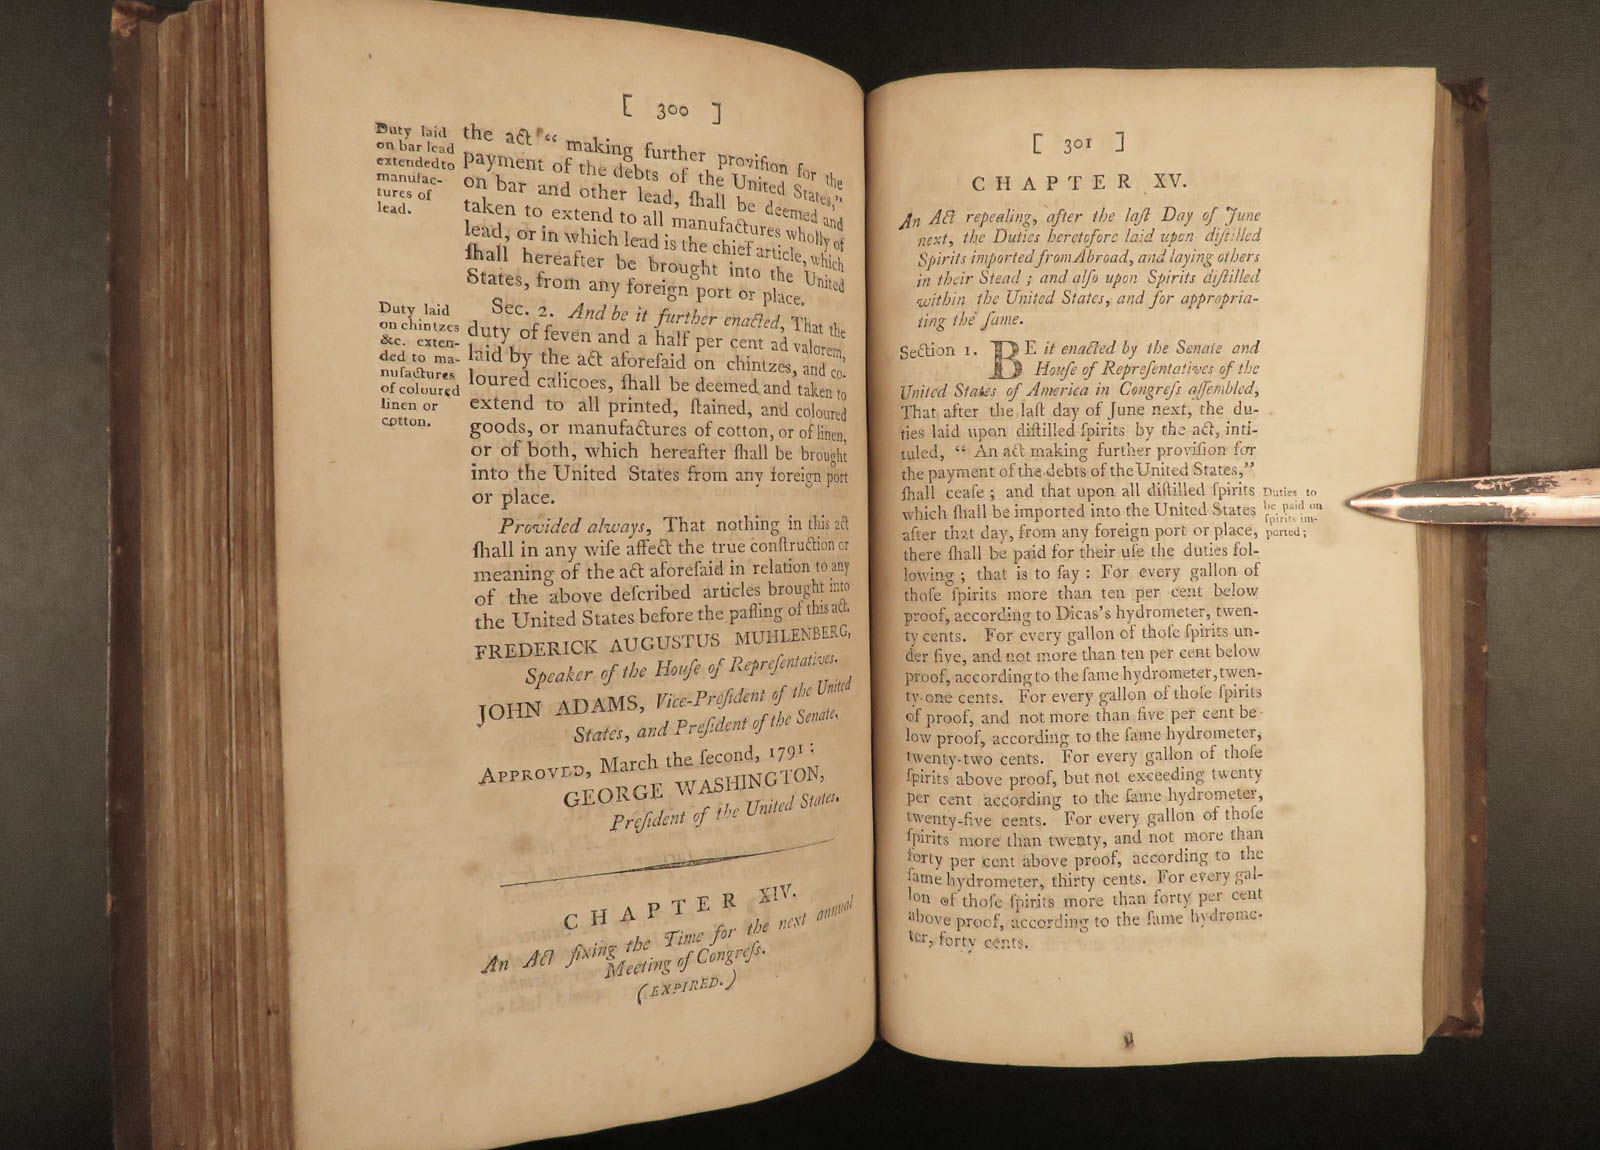 [ 300 ]
Duty laid
on bar lead
extended to
manufac-
tures of
lead.
the act “ making further proviſion for the
payment of the debts of the United States,”
on bar and other lead, ſhall be deemed and
taken to extend to all manufactures wholly of
lead, or in which lead is the chief article, which
ſhall hereafter be brought into the United
States, from any foreign port or place.
Duty laid
on chintzes
&c. exten-
ded to ma-
nufactures
of coloured
linen or
cotton.
Sec. 2. And be it further enacted, That the
duty of ſeven and a half per cent ad valorem,
laid by the act aforeſaid on chintzes, and co-
loured calicoes, ſhall be deemed and taken to
extend to all printed, ſtained, and coloured
goods, or manufactures of cotton, or of linen,
or of both, which hereafter ſhall be brought
into the United States from any foreign port
or place.
Provided always, That nothing in this act
ſhall in any wiſe affect the true conſtruction or
meaning of the act aforeſaid in relation to any
of the above deſcribed articles brought into
the United States before the paſſing of this act.
FREDERICK AUGUSTUS MUHLENBERG,
Speaker of the Houſe of Repreſentatives.
JOHN ADAMS, Vice-Preſident of the United
States, and Preſident of the Senate.
APPROVED, March the ſecond, 1791:
GEORGE WASHINGTON,
Preſident of the United States.
CHAPTER XIV.
An Act fixing the Time for the next annual
Meeting of Congreſs.
(EXPIRED.)
[ 301 ]
CHAPTER XV.
An Act repealing, after the laſt Day of June
next, the Duties heretofore laid upon diſtilled
Spirits imported from Abroad, and laying others
in their Stead ; and alſo upon Spirits diſtilled
within the United States, and for appropria-
ting the ſame.
Section 1. BE it enacted by the Senate and
Houſe of Repreſentatives of the
United States of America in Congreſs aſſembled,
That after the laſt day of June next, the du-
ties laid upon diſtilled ſpirits by the act, inti-
tuled, “ An act making further proviſion for
the payment of the debts of the United States,”
ſhall ceaſe ; and that upon all diſtilled ſpirits
which ſhall be imported into the United States
after that day, from any foreign port or place,
there ſhall be paid for their uſe the duties fol-
lowing ; that is to ſay : For every gallon of
thoſe ſpirits more than ten per cent below
proof, according to Dicas's hydrometer, twen-
ty cents. For every gallon of thoſe ſpirits un-
der five, and not more than ten per cent below
proof, according to the ſame hydrometer, twen-
ty-one cents. For every gallon of thoſe ſpirits
of proof, and not more than five per cent be-
low proof, according to the ſame hydrometer,
twenty-two cents. For every gallon of thoſe
ſpirits above proof, but not exceeding twenty
per cent according to the ſame hydrometer,
twenty-five cents. For every gallon of thoſe
ſpirits more than twenty, and not more than
forty per cent above proof, according to the
ſame hydrometer, thirty cents. For every gal-
lon of thoſe ſpirits more than forty per cent
above proof, according to the ſame hydrome-
ter, forty cents.
Duties to
be paid on
ſpirits im-
ported;